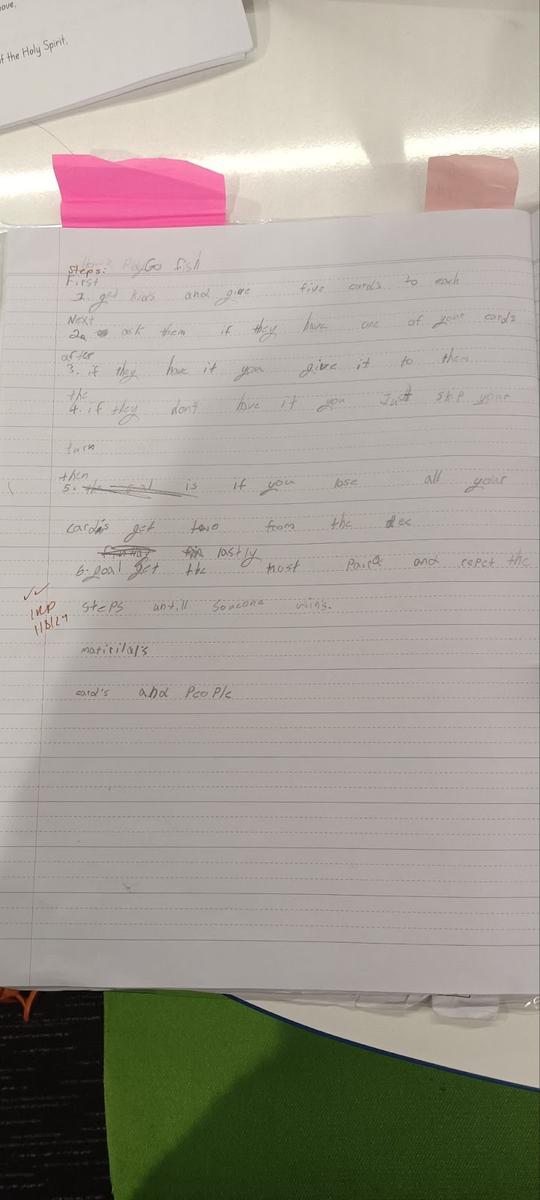 ove.
of the Holy Spirit.
Play Go fish
Steps:
First
1. get kids and give five cards to each
Next
2. ask them if they have one of your cards
after
3. if they have it you give it to them
the
4. if they don't have it you Just skip your
turn
then
5. is if you lose all your
cards get two from the dec
lastly
6. goal get the most Pairs and repet the
steps untill someone wins.
matirila's
card's and People